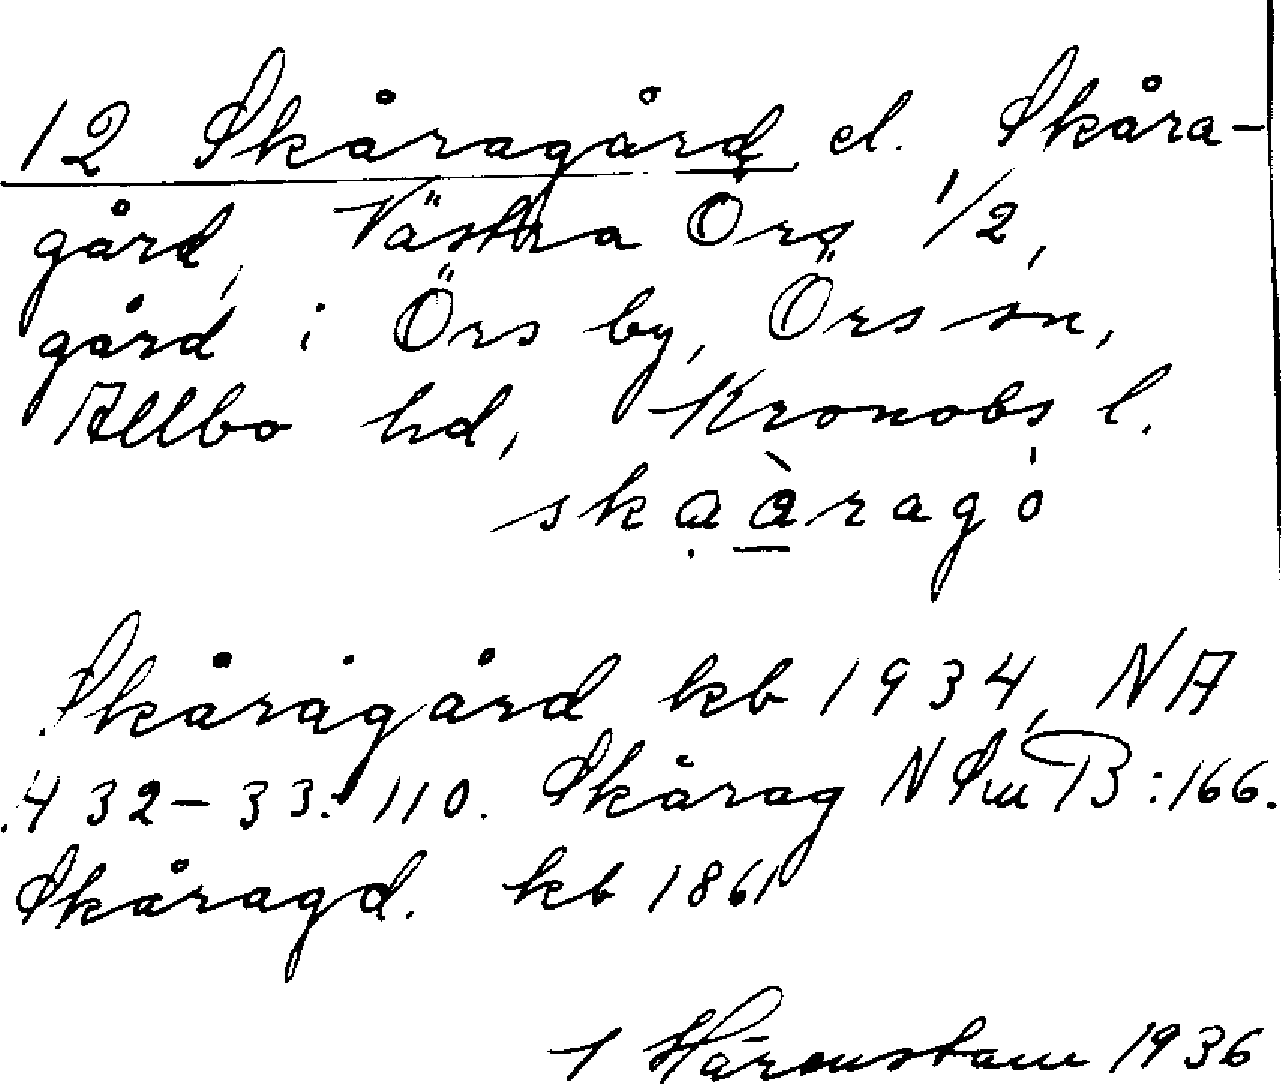 12 Skåragård el. Skåra-
gård, Västra Örs 1/2,
gård i Örs by, Örs sn,
Allbo hd, Kronobs l.
skaàragó
Skåragård kb 1934, NA
432-33: 110. Skårag NSmB:166.
Skåragd. kb 1861
1936